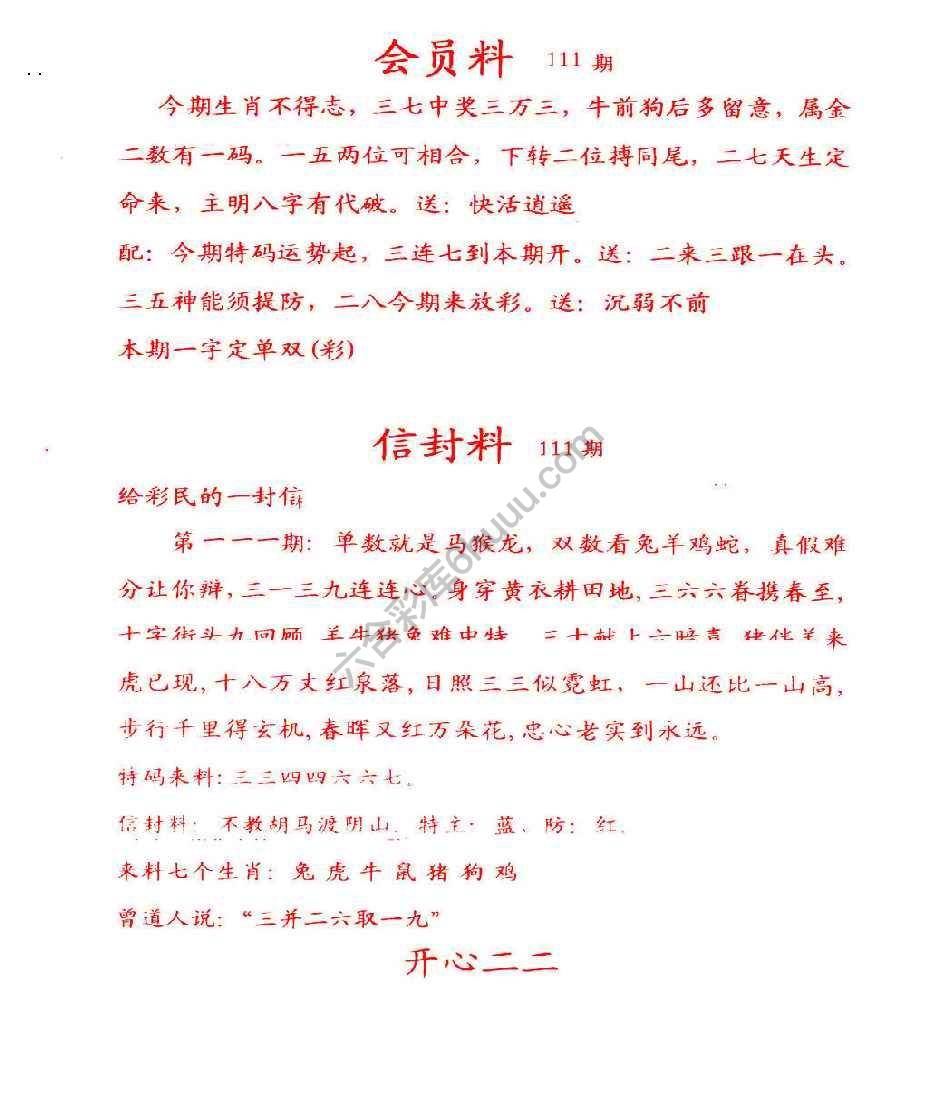 会员料 111 期
今期生肖不得志，三七中奖三万三，牛前狗后多留意，属金
二数有一码。一五两位可相合，下转二位搏同尾，二七天生定
命来，主明八字有代破。送：快活逍遥
配：今期特码运势起，三连七到本期开。送：二来三跟一在头。
三五神能须提防，二八今期来放彩。送：沉弱不前
本期一字定单双(彩)
信封料 111 期
给彩民的一封信
第一一一期：单数就是马猴龙，双数看兔羊鸡蛇，真假难
分让你辩，三一三九连连心。身穿黄衣耕田地，三六六眷携春至，
十字街头九回顾，羊牛猪兔难中特，三十献上六暗喜，猪伴羊来
虎已现，十八万丈红泉落，日照三三似霓虹，一山还比一山高，
步行千里得玄机，春晖又红万朵花，忠心老实到永远。
特码来料：三三四四六六七。
信封料：不教胡马渡阴山。特主：蓝、防：红。
来料七个生肖：兔虎牛鼠猪狗鸡
曾道人说：“三并二六取一九”
开心二二
六合彩库6huuu.com